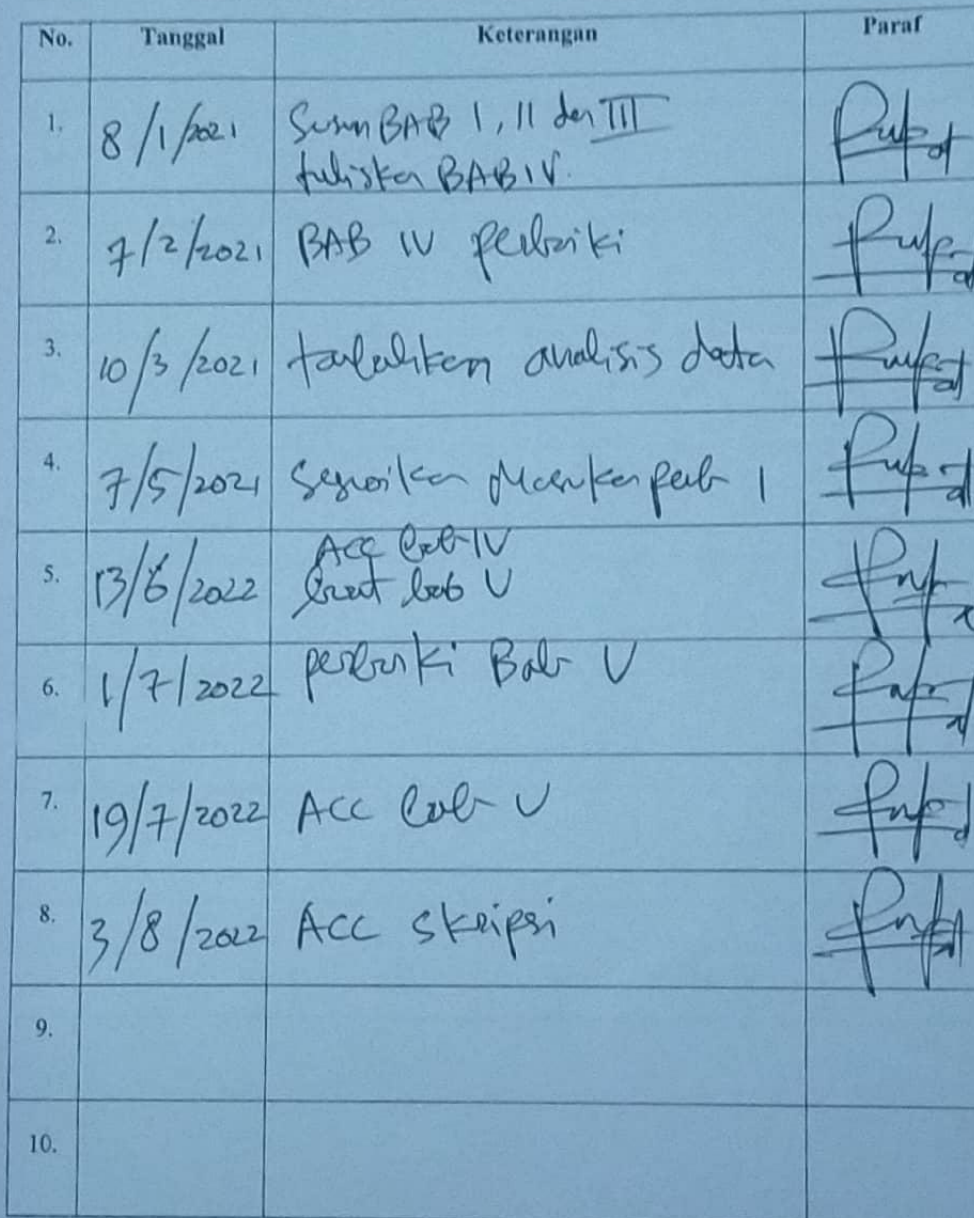 No. Tanggal Keterangan Paraf
1. 8/1/2021 Susun BAB I, II dan III
tuliskan BAB IV.
2. 7/2/2021 BAB IV perbaiki
3. 10/3/2021 analisis data
4. 7/5/2021 1
ACC bab IV
5. 13/6/2022 buat bab V
6. 1/7/2022 perbaiki Bab V
7. 19/7/2022 ACC bab V
8. 3/8/2022 ACC skripsi
9.
10.